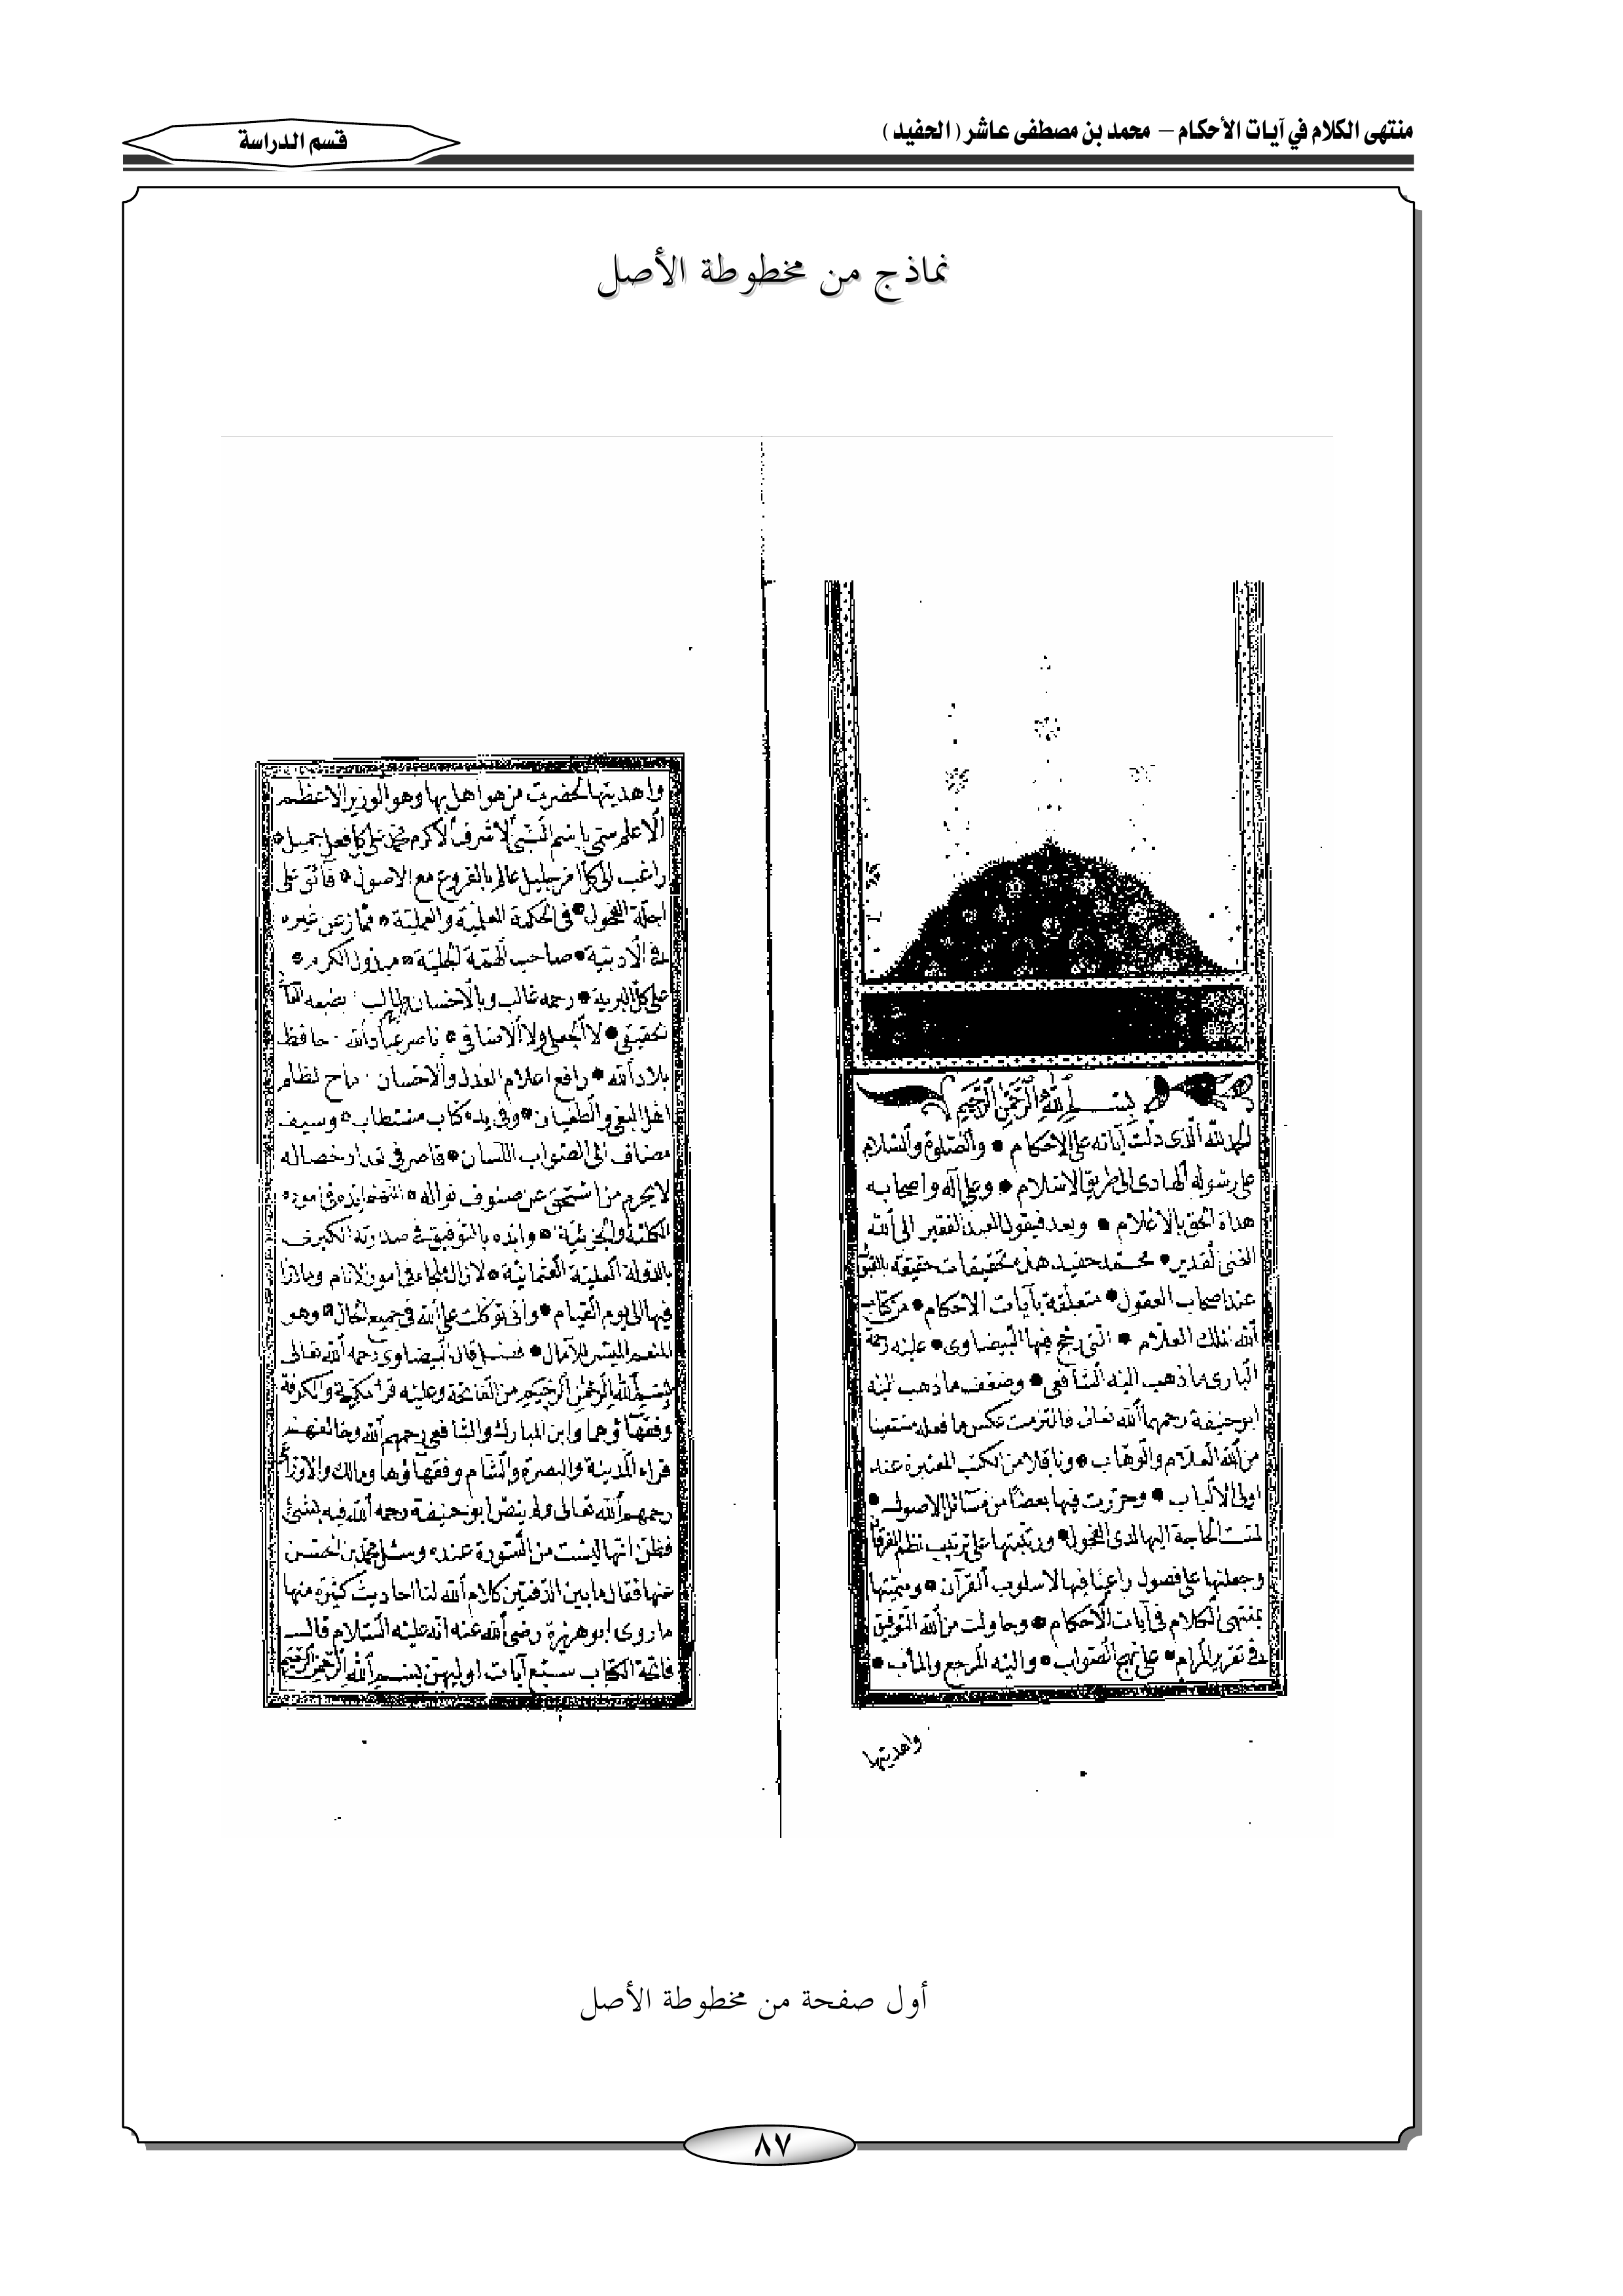 منتهى الكلام في آيات الأحكام – محمد بن مصطفى عاشر ( الحفيد )
قسم الدراسة
نماذج من مخطوطة الأصل
بسم الله الرحمن الرحيم
الحمد لله الذى دلت آياته على الاحكام • والصلوة والسلام
على رسوله الهادى الى طريق الاسلام • وعلى آله واصحابه
هداة الحق بالاعلام • وبعد فيقول العبد الفقير الى الله
الغنى القدير • محمد حفيد هذه تحقيقات حقيقة بالقبول
عند اصحاب العقول • متعلقة بآيات الاحكام • من كتاب
الله الملك العلام • التى رجح فيها البيضاوى • عليه رحمة
البارى ما ذهب اليه الشافعى • وضعف ما ذهب اليه
ابو حنيفة رحمهما الله تعالى فالتزمت عكس ما فعله مستعينا
من الله العلام والوهاب • وناقلا من الكتب المعتبرة عند
اولى الالباب • وحررت فيها بعضا من مسائل الاصول •
لمست الحاجة اليها لدى الفحول • ورتبتها على ترتيب نظم الفرقان
وجعلتها على فصول راعيا فيها الاسلوب القرآن • وسميتها
بمنتهى الكلام فى آيات الاحكام • وحاولت من الله التوفيق
فى تقرير المرام • على نهج الصواب • واليه المرجع والمآب •
واهديتها
واهديتها لحضرت من هو اهل بها وهو الوزير الاعظم
الاعلم سمى باسم النبى الاشرف الاكرم محمد على كل فعل جميل •
راغب الى كل امر جليل عالم بالفروع مع الاصول • فائق على
اجلة الفحول • فى الحكمة العلمية والعملية • ممتاز عن غيره
فى الادبية • صاحب الهمة الجلية • مبذول الكرم •
على كل البرية • رحمه غالب وبالاحسان طالب
تحقيقى • لا الجعلى ولا الاضافى • ناصر عباد الله • حافظ
بلاد الله • رافع اعلام العدل والاحسان • ماح لظلم
اهل البغى والطغيان • وفى يده كتاب مستطاب • وسيف
مضاف الى الصواب اللسان • قاصر فى تعداد خصاله
لا يحرم من استحق عن صنوف نواله • اللهم ايده فى اموره
الكلية والجزئية • وايده بالتوفيق فى صدارته الكبرى
بالدولة العلية العثمانية • لازال ملجاء فى امور الانام وملاذا
فيها الى يوم القيام • وانى توكلت على الله فى جميع الحال • وهو
المنعم الميسر للآمال • فصل قال البيضاوى رحمه الله تعالى
بسم الله الرحمن الرحيم من الفاتحة وعليه قراء مكة والكوفة
وفقهاؤهما وابن المبارك والشافعى رحمهم الله وخالفهم
قراء المدينة والبصرة والشام وفقهاؤها ومالك والاوزاعى
رحمهم الله تعالى ولم ينص ابو حنيفة رحمه الله فيه بشئ
فظن انها ليست من السورة عنده وسئل محمد بن الحسن
عنها فقال ما بين الدفتين كلام الله لنا احاديث كثيرة منها
ما روى ابو هريرة رضى الله عنه انه عليه السلام قال
فاتحة الكتاب سبع آيات اوليهن بسم الله الرحمن الرحيم
أول صفحة من مخطوطة الأصل
٨٧